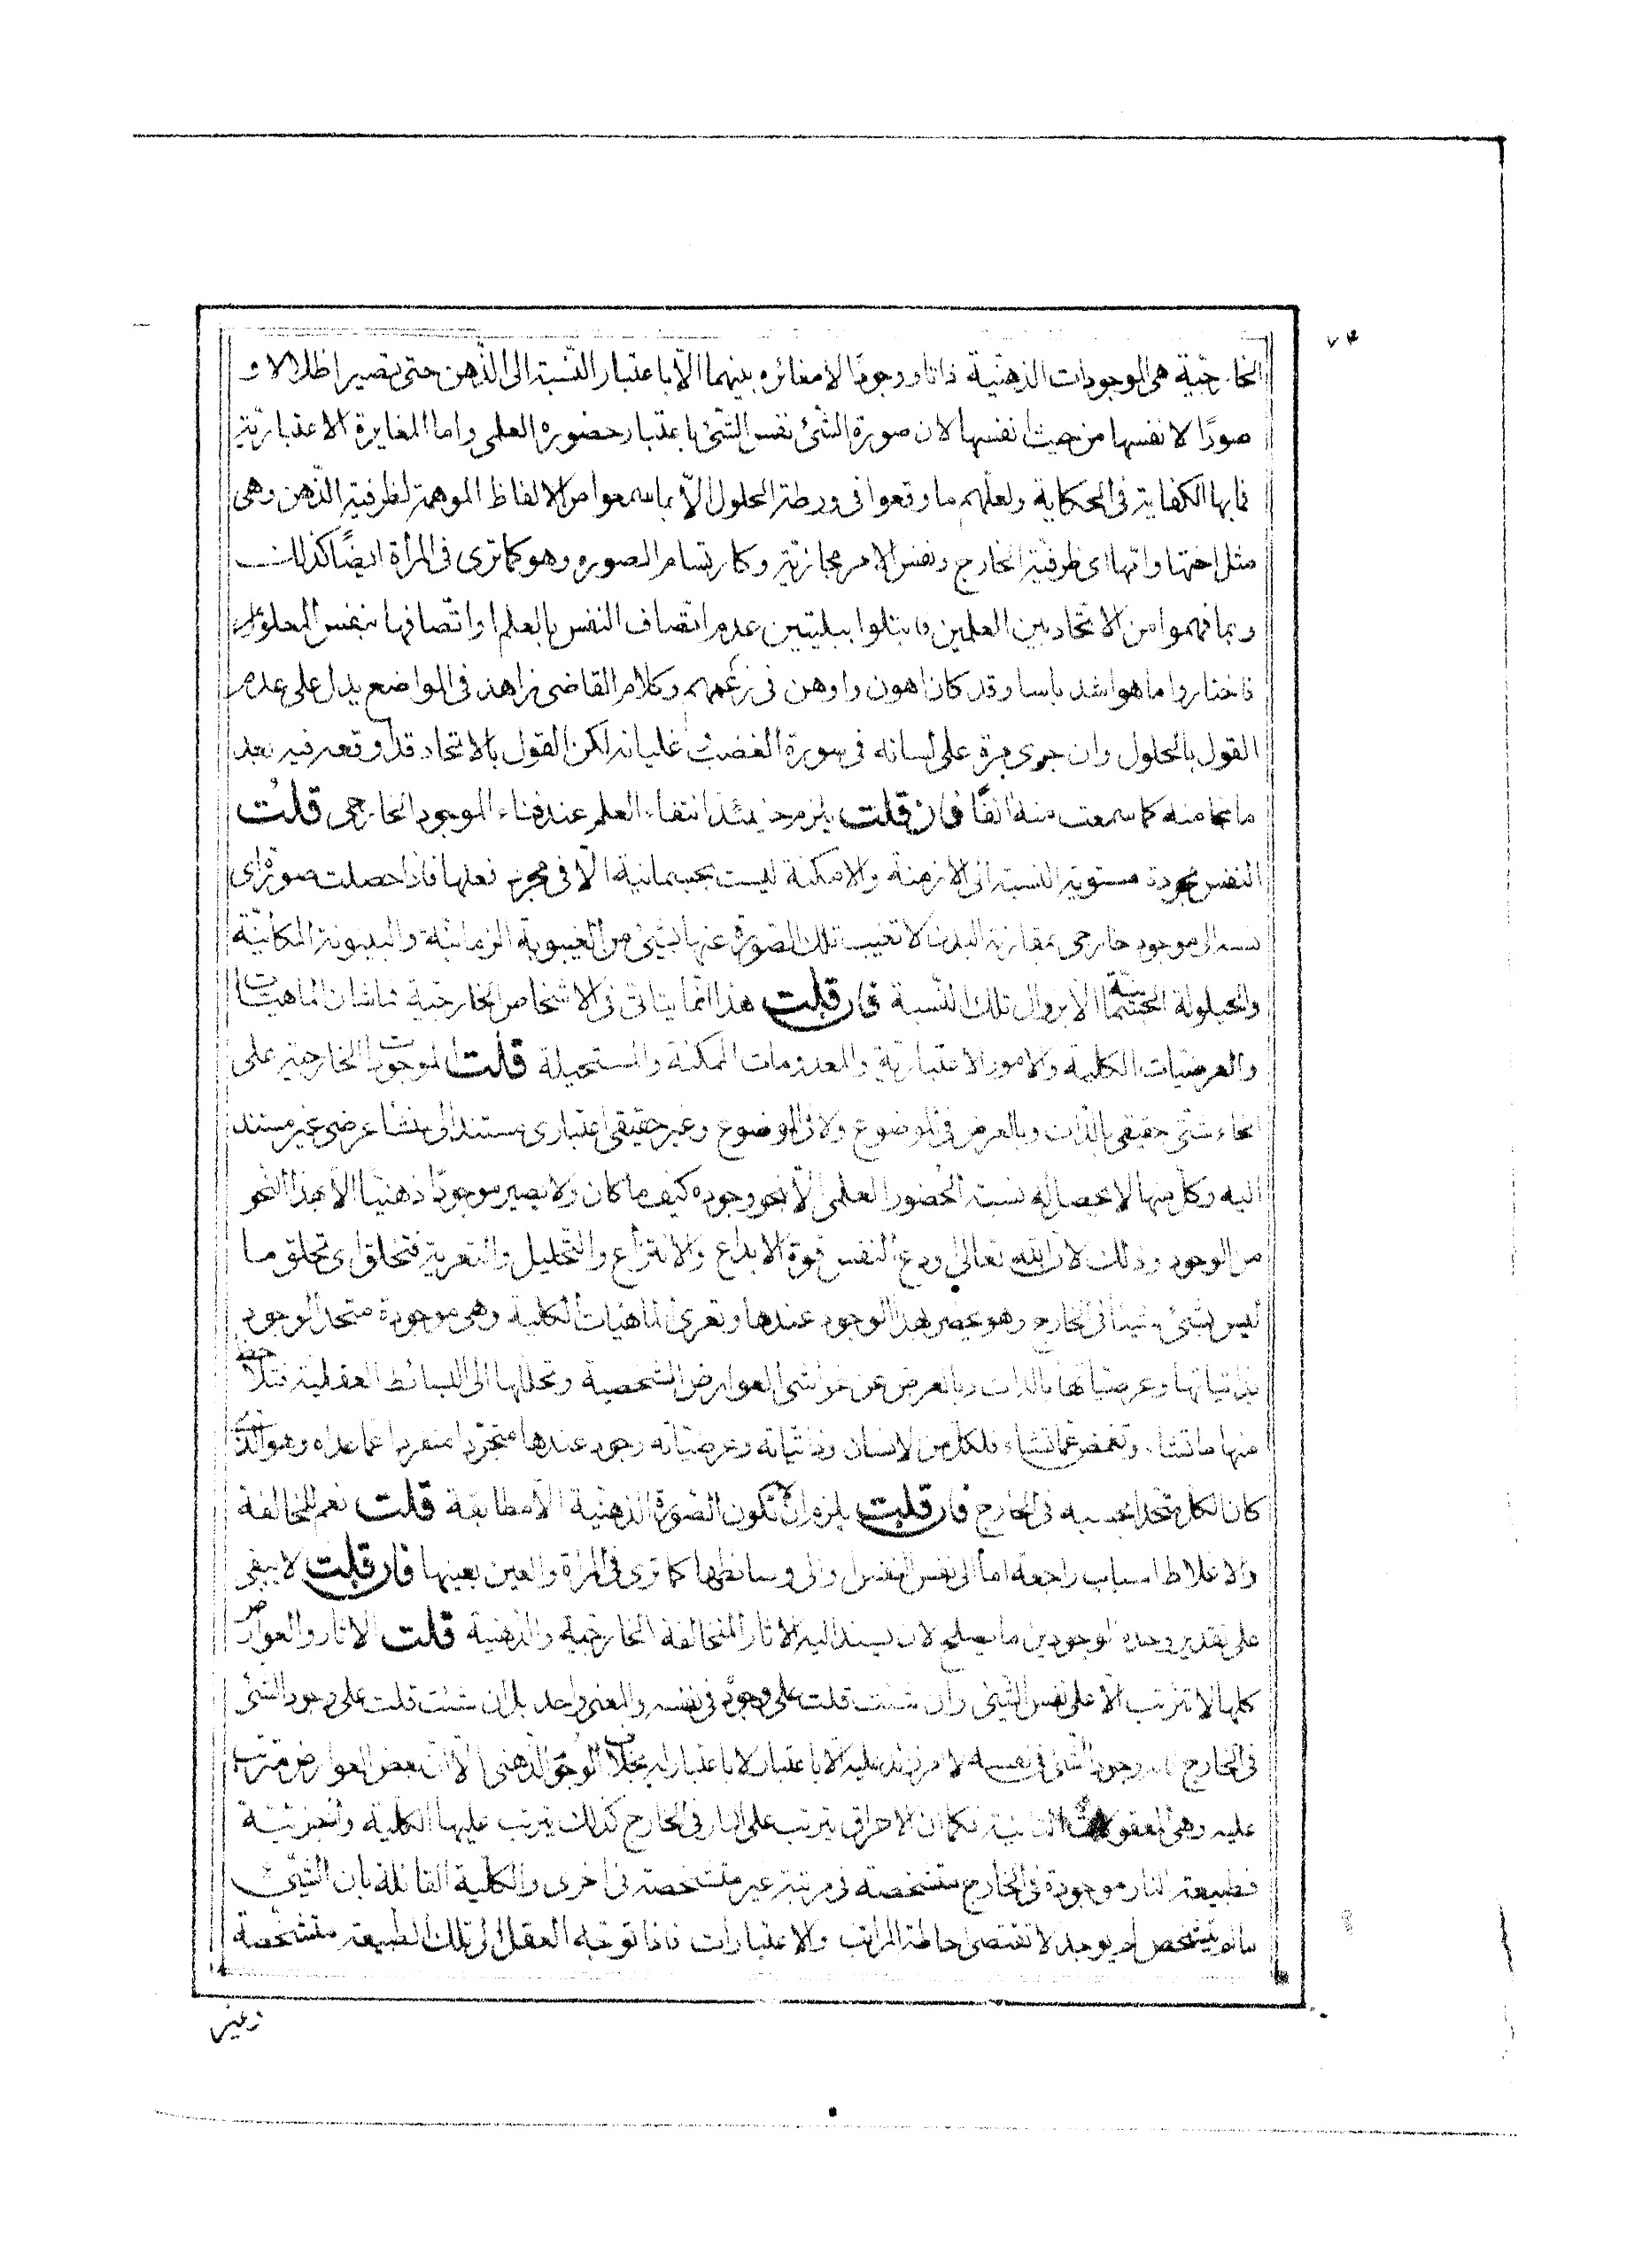 ٧٣
الخارجية هى الموجودات الذهنية ذاتا ووجودًا لا مغائره بينهما الّا باعتبار النّسبة الى الذّهن حتى تصير اظلالا و
صورًا لا نفسها من حيث نفسها لان صورة الشئ نفس الشئ باعتبار حضوره العلمى واما المغايرة الاعتباريّة
فما بها الكفاية فى الحكاية ولعلّهم ما وقعوا فى ورطة الحلول الّا بما سمعوا من الالفاظ الموهمة لظرفية الذّهن وهى
مثل اختها وانها اى ظرفية الخارج ونفس الامر مجازيّة وكارتسام الصوره وهو كما ترى فى المرأة ايضًا كذلك
وبما فهموا من الاتحاد بين العلمين فابتلوا ببليتين عدم اتّصاف النفس بالعلم او اتّصافها بنفس المعلوم
فاختاروا ما هو اشد باسا وقد كان اهون واوهن فى زعمهم وكلام القاضى زاهد فى المواضع يدل على عدم
القول بالحلول وان جرى مرة على لسانه فى سورة الغضب غليانه لكن القول بالاتحاد قد اوقعه فيه بعد
ما نجا منه كما سمعت منه انفًا فان قلت يلزم حينئذ انتفاء العلم عند فناء الموجود الخارجى قلت
النفس مجردة مستوية النسبة الى الازمنة والامكنة ليست بجسمانية الّا فى مجرد فعلها فاذا حصلت صورة اى
نسبة الى موجود خارجى بمقارنة البدن لا تغيب تلك الصورة عنها بشئ من الغيبوبة الزمانية والبينونة المكانيّة
والحيلولة الجسمانية الا بزوال تلك النّسبة فان قلت هذا انّما يتاتى فى الاشخاص الخارجيّة فما شان الماهيات
والعرضيّات الكلية والامور الاعتباريّة والمعدومات الممكنة والمستحيلة قلت الموجودات الخارجية على
انحاء شتى حقيقى بالذات وبالعرض فى الموضوع ولا فى الموضوع وغير حقيقى اعتبارى مستند الى منشا عرضى غير مستند
اليه وكل منها لا يحصل له نسبة الحضور العلمى الّا بنحو وجوده كيف ما كان ولا يصير موجودًا ذهنيّا الا بهذا النحو
من الوجود وذلك لان الله تعالى اودع النفس قوة الابداع والانتزاع والتحليل والتعرية فتخلق اى تخلق ما
ليس بشئ شيئا فى الخارج وهو بحصر هذا الوجود عندها وتعرى الماهيّات الكلية وهى موجودة متحد الوجود
بذاتياتها وعرضياتها بالذات وبالعرض عن غواشى العوارض الشخصية وتحللها الى البسائط العقلية فتلاحظ
منها ما تشاء وتغمض عما تشاء فلكل من الانسان وذاتياته وعرضيّاته وجود عندها متجردا منفردا عما عداه وهو الذى
كان الكل متحدا بحسبه فى الخارج فان قلت يلزم ان لا تكون الصورة الذهنية الا مطابقة قلت نعم للمخالفة
والاغلاط اسباب راجعة اما الى نفس النفس او الى وسائطها كما ترى فى المرأة والعين بعينها فان قلت لا يبقى
على تقدير وحدة الوجودين ما يصلح لان يستند اليه الاثار المتخالفة الخارجية والذهنية قلت الاثار والعوارض
كلها لا تترتب الا على نفس الشئ وان شئت قلت على وجوده فى نفسه والمعنى واحد بل ان شئت قلت على وجود الشئ
فى الخارج وجود الشئ فى نفسه لا مزيد عليه الا باعتبار لا باعتباراته بخلاف الوجود الذهنى الّا ان بعض العوارض مترتب
عليه وهى المعقولات الثانية فكما ان الاحراق يترتب على النار فى الخارج كذلك يترتب عليها الكلية والجزئيّة
فطبيعة النار موجودة فى الخارج متشخصة فى مرتبة غير متشخصة فى اخرى والكلية القائلة بان الشئ
ما لم يتشخص لم يوجد لا تقتضى احاطة المراتب والاعتبارات فاذا توجّه العقل الى تلك الطبيعة متشخّصة
وغير